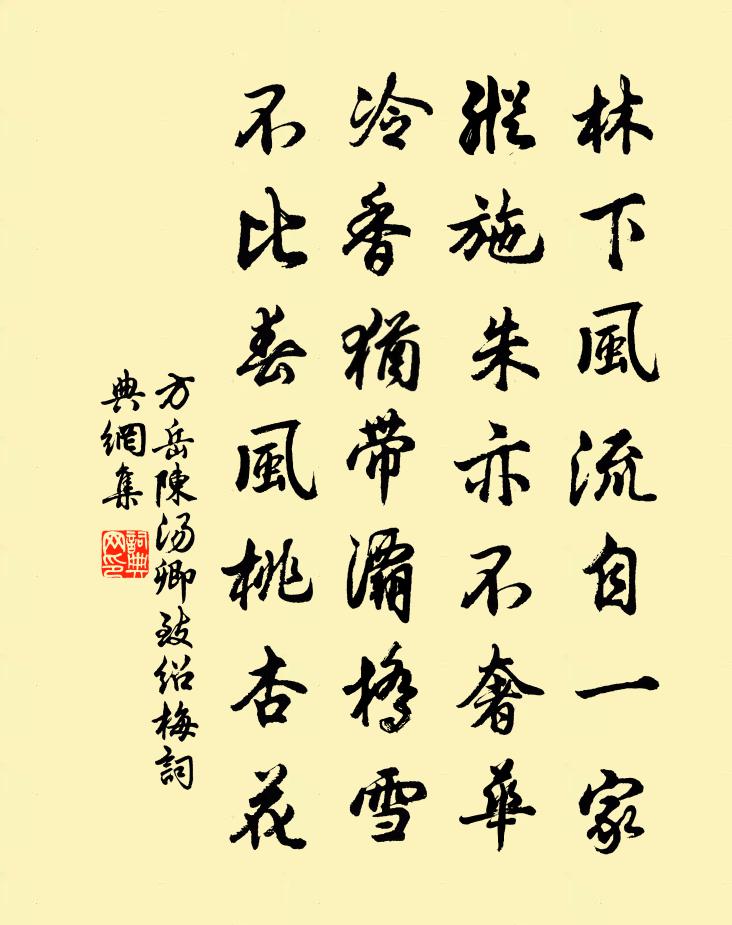 林下風流自一家
縱施朱亦不奢華
冷香猶帶灞橋雪
不比春風桃杏花
方岳陳湯卿致紹梅詞
典網集
詞典
网印